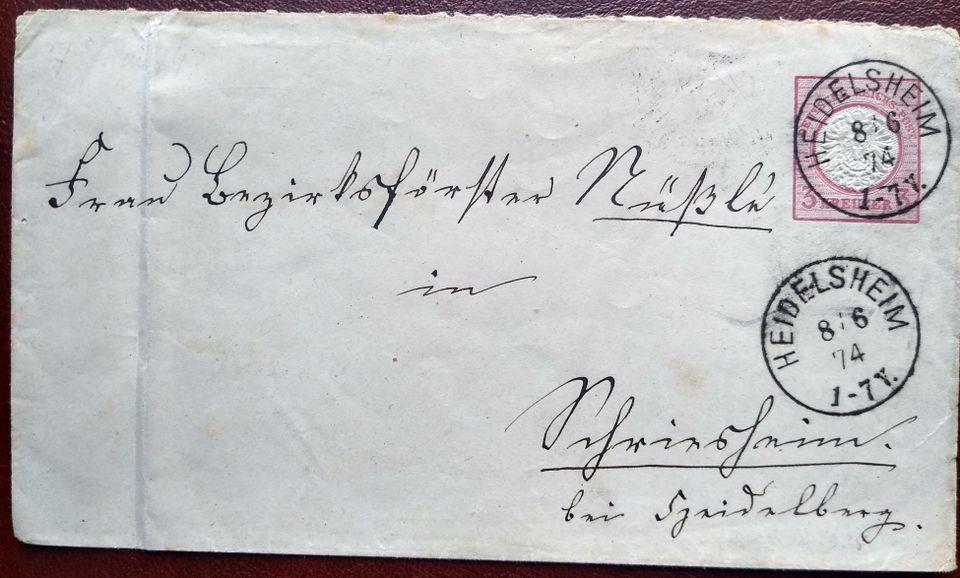 HEIDELSHEIM
8 6
74
1-7V.
3 KREUZER 3
Frau Bezirksförster Nüßle
in
HEIDELSHEIM
8 6
74
1-7V.
Schriesheim.
bei Heidelberg.